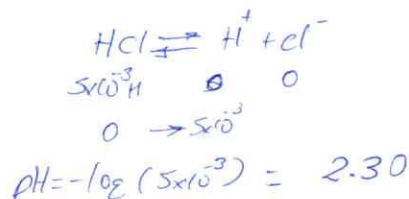 HCl ⇌ H⁺ + Cl⁻
5x10⁻³M 0 0
0 → 5x10⁻³
pH = -log (5x10⁻³) = 2.30